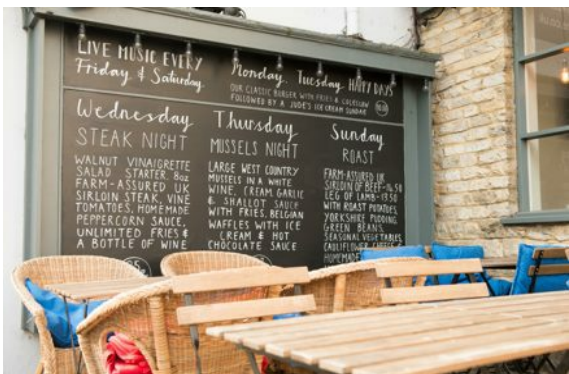 LIVE MUSIC EVERY
Friday & Saturday
Monday Tuesday HAPPY DAYS
OUR CLASSIC BURGER WITH FRIES & COLESLAW
FOLLOWED BY A JUDE'S ICE CREAM SUNDAE
Wednesday
STEAK NIGHT
WALNUT VINAIGRETTE
SALAD STARTER. 8oz
FARM-ASSURED UK
SIRLOIN STEAK, VINE
TOMATOES, HOMEMADE
PEPPERCORN SAUCE,
UNLIMITED FRIES &
A BOTTLE OF WINE
Thursday
MUSSELS NIGHT
LARGE WEST COUNTRY
MUSSELS IN A WHITE
WINE, CREAM GARLIC
& SHALLOT SAUCE
WITH FRIES, BELGIAN
WAFFLES WITH ICE
CREAM & HOT
CHOCOLATE SAUCE
Sunday
ROAST
FARM-ASSURED UK
SIRLOIN OF BEEF-14.50
LEG OF LAMB-13.50
WITH ROAST POTATOES,
YORKSHIRE PUDDING,
GREEN BEANS,
SEASONAL VEGETABLES,
CAULIFLOWER CHEESE
HOMEMADE